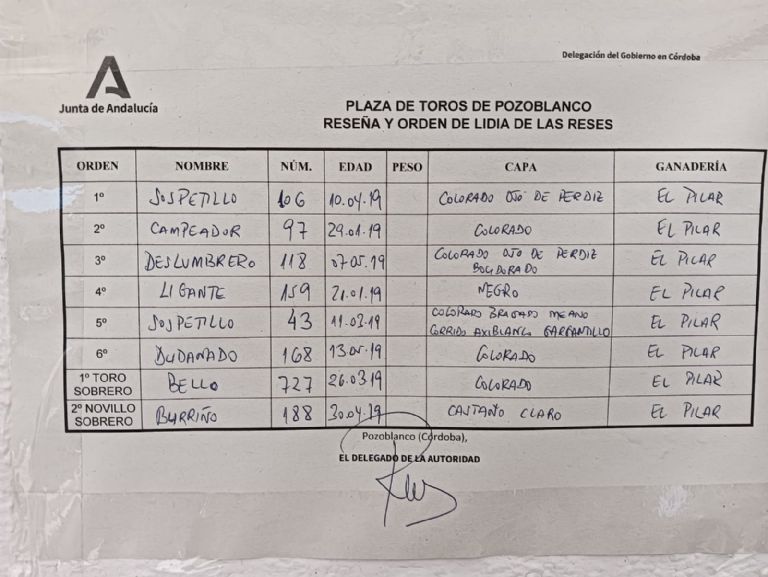 Delegación del Gobierno en Córdoba
Junta de Andalucía
PLAZA DE TOROS DE POZOBLANCO
RESEÑA Y ORDEN DE LIDIA DE LAS RESES
ORDEN NOMBRE NÚM. EDAD PESO CAPA GANADERÍA
1º SOSPETILLO 106 10.04.19 COLORADO OJO DE PERDIZ EL PILAR
2º CAMPEADOR 97 29.01.19 COLORADO EL PILAR
3º DESLUMBRERO 118 07.05.19 COLORADO OJO DE PERDIZ EL PILAR
BOCIDORADO
4º LIGANTE 159 21.01.19 NEGRO EL PILAR
5º SOSPETILLO 43 11.03.19 COLORADO BRAGADO MEANO EL PILAR
CORRIDO AXIBLANCO GARGANTILLO
6º DUDANADO 168 COLORADO EL PILAR
1º TORO
SOBRERO BELLO 727 26.03.19 COLORADO EL PILAR
2º NOVILLO
SOBRERO BURRIÑO 188 30.04.19 CASTAÑO CLARO EL PILAR
Pozoblanco (Córdoba),
EL DELEGADO DE LA AUTORIDAD